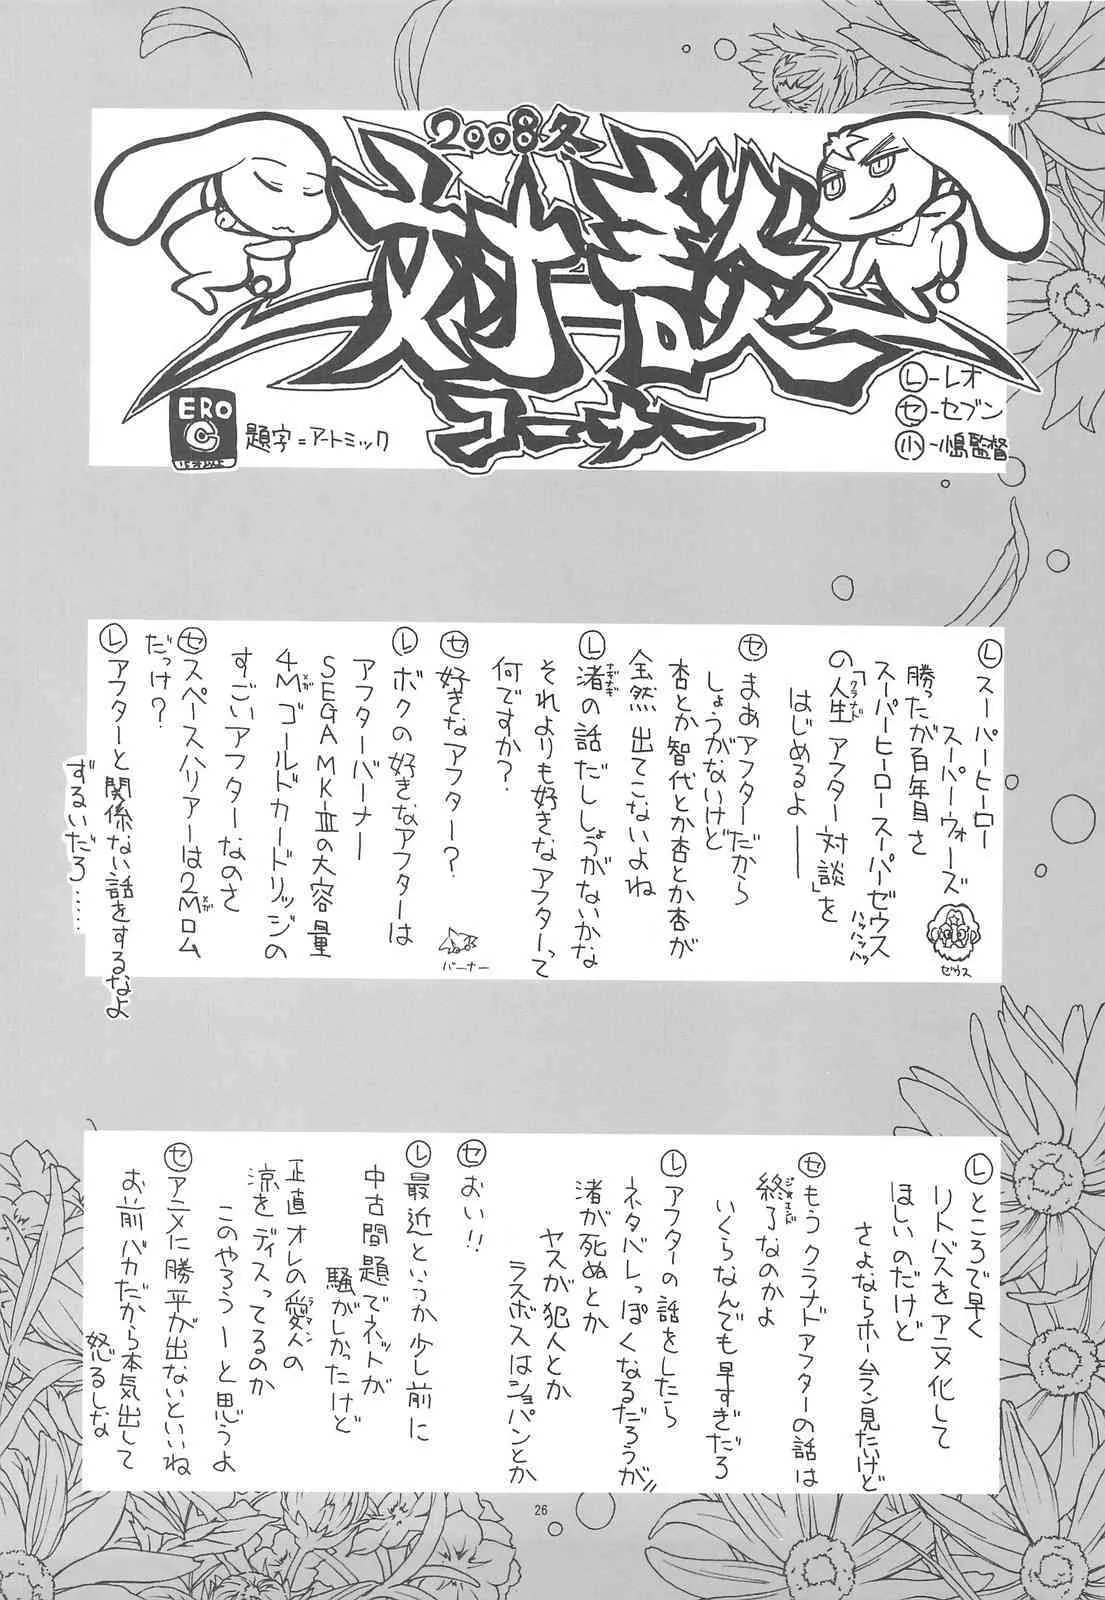 2008冬
対談
コーナー
ERO
C
題字=アートミック
Ⓛ-レオ
㋝-セブン
㋛-小島監督
Ⓛスーパーヒーロー
スーパーウォーズ
勝ったが百年目さ
スーパーヒーロースーパーゼウス
ハッハッハッ
の「人生アフター対談」を
クラナド
はじめるよ——
ゼウス
㋝まあアフターだから
しょうがないけど
杏とか智代とか杏とか杏が
全然出てこないよね
Ⓛ渚の話だししょうがないかな
なぎなぎ
それよりも好きなアフターって
何ですか?
㋝好きなアフター?
バーナー
Ⓛボクの好きなアフターは
アフターバーナー
SEGAMK-Ⅲの大容量
4Mゴールドカードリッジの
メガ
すごいアフターなのさ
㋝スペースハリアーは2Mロム
メガ
だっけ?
Ⓛアフターと関係ない話をするなよ
ずるいだろ……
Ⓛところで早く
リトバスをアニメ化して
ほしいのだけど
さよならホームラン見たいけど
㋝もうクラナドアフターの話は
終了なのかよ
ジ・エンド
いくらなんでも早すぎだろ
Ⓛアフターの話をしたら
ネタバレっぽくなるだろうが!!
渚が死ぬとか
ヤスが犯人とか
ラスボスはショパンとか
㋝おい!!
Ⓛ最近というか少し前に
中古問題でネットが
騒がしかったけど
正直オレの愛人の
ラマン
涼をディスってるのか
このやろうーと思うよ
㋝アニメに勝平が出ないといいね
お前バカだから本気出して
怒るしな
26